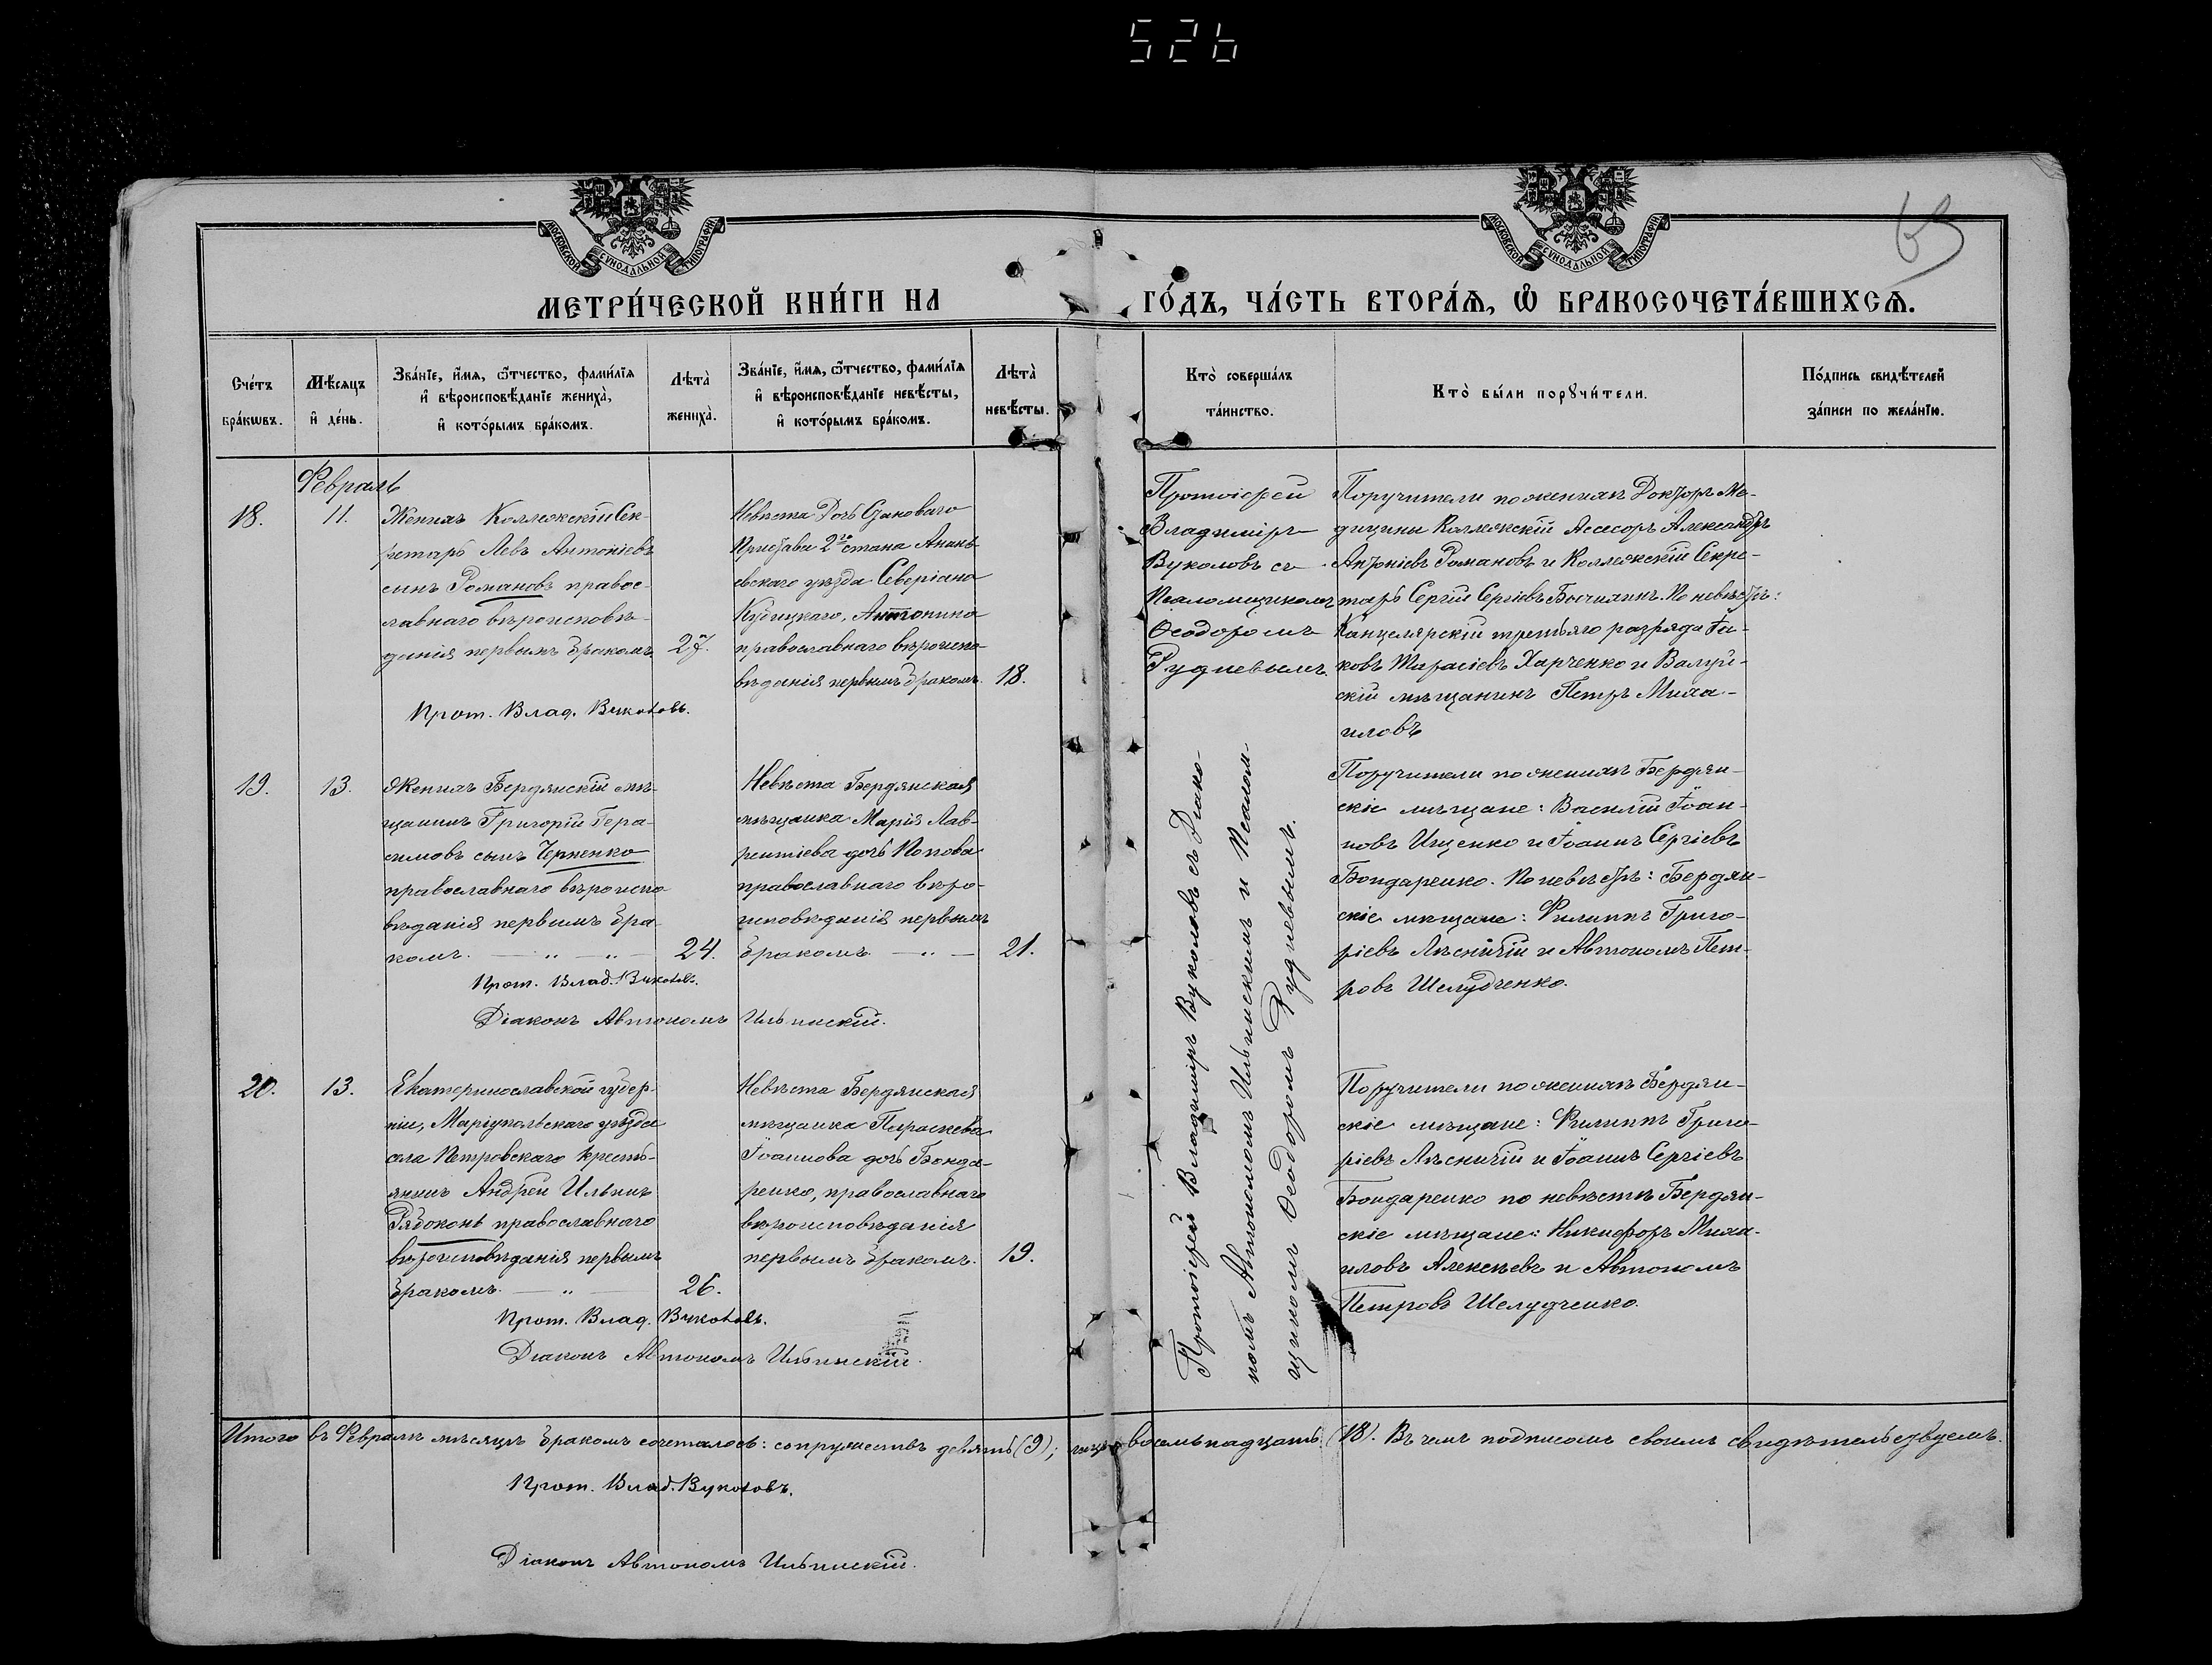 526
63
МОСКОВСКОЙ СѴНОДАЛЬНОЙ ТИПОГРАФІИ
МОСКОВСКОЙ СѴНОДАЛЬНОЙ ТИПОГРАФІИ
МЕТРИ́ЧЕСКОЙ КНИ́ГИ НА ГО́ДЪ, ЧА́СТЬ ВТОРА́Ѧ, Ѽ БРАКОСОЧЕТА́ВШИХСѦ.
Сче́тъ бра́кѡвъ.
Мѣ́сяцъ и҆ де́нь.
Зва́нїе, и҆́мѧ, ѻ҆́тчество, фами́лїѧ
и҆ вѣроисповѣ́данїе жениха̀,
и҆ кото́рымъ бра́комъ.
Лѣта̀ жениха̀.
Зва́нїе, и҆́мѧ, ѻ҆́тчество, фами́лїѧ
и҆ вѣроисповѣ́данїе невѣ́сты,
и҆ кото́рымъ бра́комъ.
Лѣта̀ невѣ́сты.
Кто̀ соверша́лъ
та́инство.
Кто̀ бы́ли порꙋчи́тели.
По́дпись свидѣ́телей
за́писи по жела́нїю.
Февраль
18.
11.
Женихъ Коллежскій Сек-
ретарь Левъ Антоніевъ
сынъ Романовъ правос-
лавнаго вѣроисповѣ-
данія первымъ бракомъ.
27.
Прот. Влад. Вуколовъ.
Невѣста Дочь Становаго
Пристава 2го стана Анань-
евскаго уѣзда Северіана
Кудицкаго, Антонина
православнаго вѣроиспо-
вѣданія первымъ бракомъ.
18.
Протоіерей
Владиміръ
Вуколовъ съ
Псаломщикомъ
Ѳеодоромъ
Рудневымъ.
Поручители по женихѣ Докторъ Ме-
дицины Коллежскій Ассесоръ Александръ
Антоніевъ Романовъ и Коллежскій Секре-
тарь Сергій Сергіевъ По невѣстѣ:
Канцелярскій третьяго разряда Іа-
ковъ Тарасіевъ Харченко и Валуй-
скій мѣщанинъ Петръ Миха-
иловъ
19.
13.
Женихъ Бердянскій мѣ-
щанинъ Григорій Гера-
симовъ сынъ Черненко
православнаго вѣроиспо-
вѣданія первымъ бра-
комъ. — „ — „ —
24.
Прот. Влад. Вуколовъ.
Діаконъ Автономъ Ильинскій.
Невѣста Бердянская
мѣщанка Марія Лав-
рентіева дочь Попова
православнаго вѣро-
исповѣданія первымъ
бракомъ. — „ —
21.
Протоіерей Владиміръ Вуколовъ съ Діако-
номъ Автономомъ Ильинскимъ и Псалом-
щикомъ Ѳеодоромъ Рудневымъ.
Поручители по женихѣ Бердян-
скіе мѣщане: Василій Іоан-
новъ Ищенко и Іоаннъ Сергіевъ
Бондаренко. По невѣстѣ: Бердян-
скіе мѣщане: Филиппъ Григо-
ріевъ Лѣсничій и Автономъ Пет-
ровъ Шелудченко.
20.
13.
Екатеринославской губер-
ніи, Маріупольскаго уѣзда
села Петровскаго кресть-
янинъ Андрей Ильинъ
Рябоконь православнаго
вѣроисповѣданія первымъ
бракомъ. — „ —
26.
Прот. Влад. Вуколовъ.
Діаконъ Автономъ Ильинскій.
Невѣста Бердянская
мѣщанка Параскева
Іоаннова дочь Бонда-
ренко, православнаго
вѣроисповѣданія
первымъ бракомъ.
19.
Поручители по женихѣ Бердян-
скіе мѣщане: Филиппъ Григо-
ріевъ Лѣсничій и Іоаннъ Сергіевъ
Бондаренко по невѣстѣ Бердян-
скіе мѣщане: Никифоръ Миха-
иловъ Алексѣевъ и Автономъ
Петровъ Шелудченко.
Итого въ Февралѣ мѣсяцѣ бракомъ сочеталось: супружествъ девять (9); лицъ восемьнадцать (18). Въ чемъ подписомъ своимъ свидѣтельствуемъ.
Прот. Влад. Вуколовъ.
Діаконъ Автономъ Ильинскій.